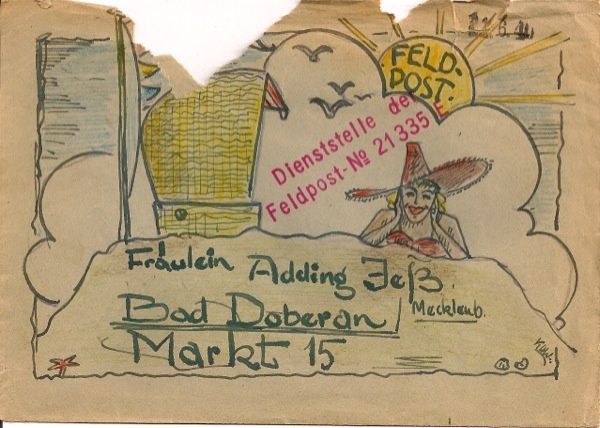 FELD-
POST.
Dienststelle der
Feldpost-№ 21 335 E
Fräulein Adding Jeß.
Bad Doberan/
Mecklenb.
Markt 15